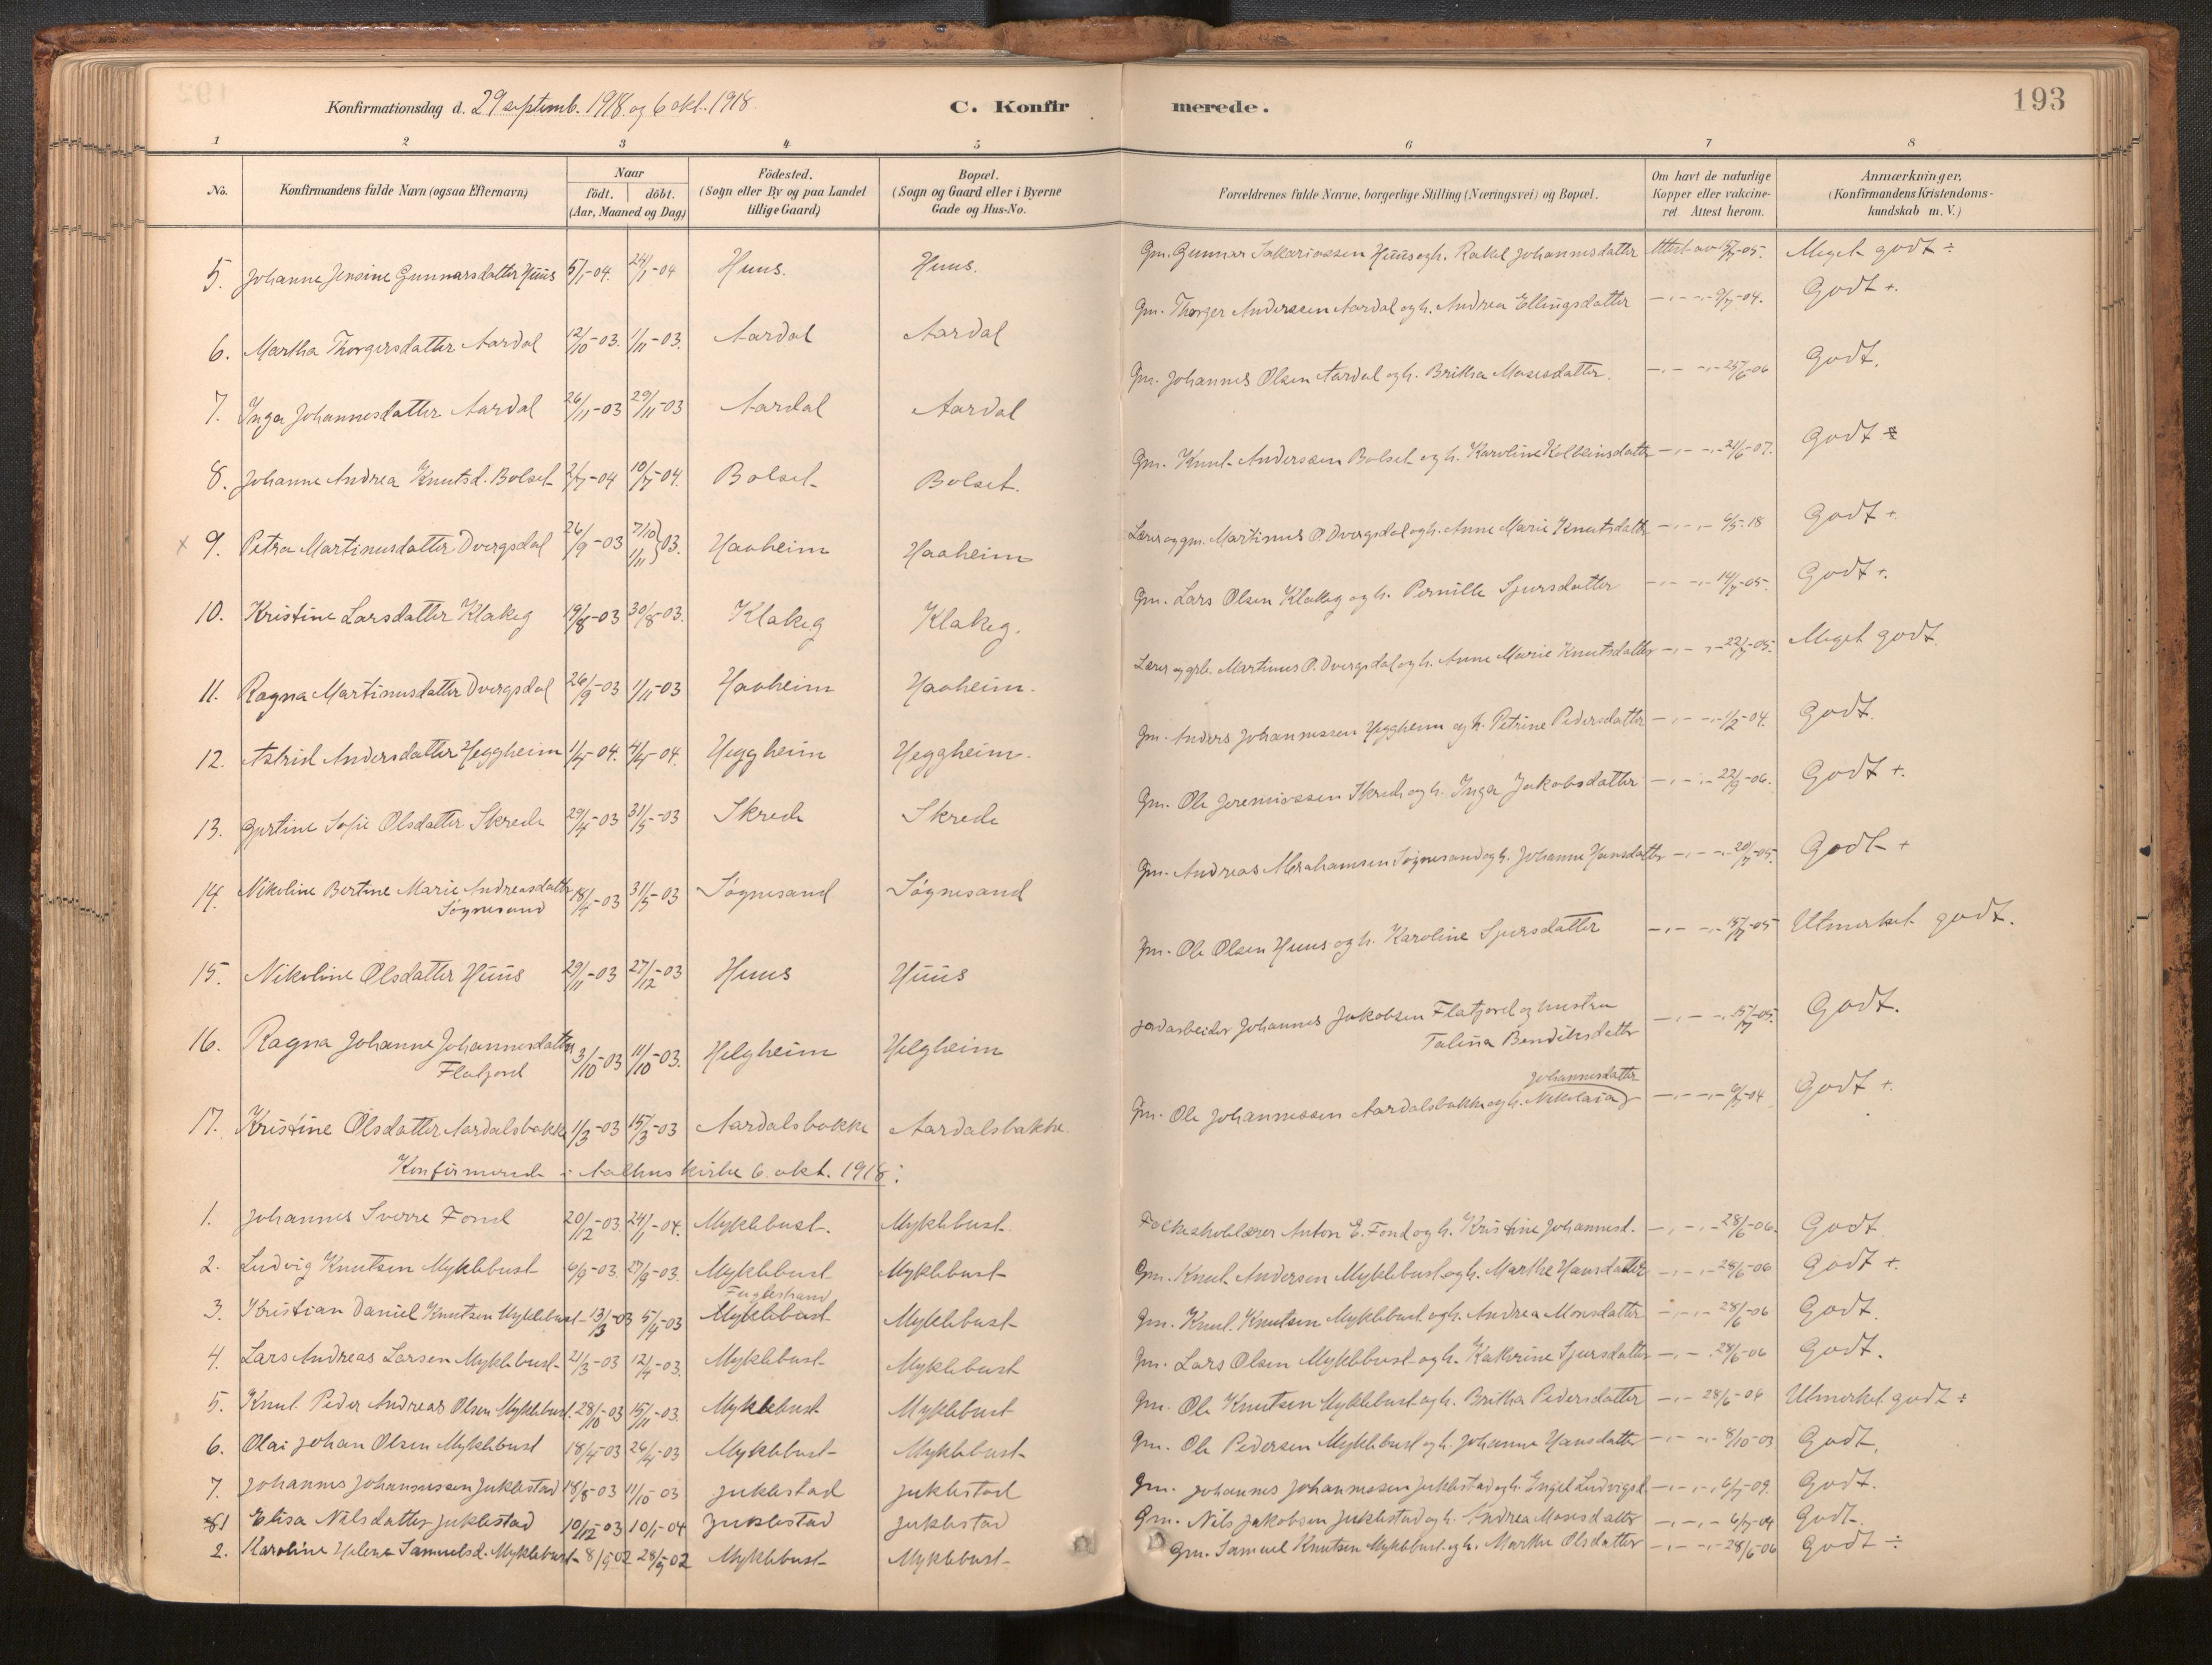 193
Konfirmationsdag d. 29 septemb. 1918 og 6 okt. 1918.
C. Konfirmerede.
1 2 3 4 5 6 7 8
No. Konfirmandens fulde Navn (ogsaa Efternavn) Naar födt. döbt. (Aar, Maaned og Dag) Födested. (Sogn eller By og paa Landet tillige Gaard) Bopæl. (Sogn og Gaard eller i Byerne Gade og Hus-No. Forældrenes fulde Navne, borgerlige Stilling (Næringsvei) og Bopæl. Om havt de naturlige Kopper eller vakcineret. Attest herom. Anmærkninger, (Konfirmandens Kristendomskundskab m. V.)
5. Johanne Jensine Gunnarsdatter Huus 5/1-04. 24/1-04 Huus. Huus. Gm. Gunnar Sakariassen Huus og h. Rakel Johannesdatter Attest av Meget godt ÷
6. Martha Thorgersdatter Aardal 12/10-03. 1/11-03. Aardal Aardal Gm. Thorger Anderssen Aardal og h. Andrea Ellingsdatter Godt +.
7. Inga Johannesdatter Aardal 26/11-03 29/11-03 Aardal Aardal Gm. Johannes Olsen Aardal og h. Britha Mosesdatter. 25/6-06 Godt.
8. Johanne Andrea Knutsd. Bolset 10/7-04. Bolset Bolset. Gm. Knut Anderssen Bolset og h. Karoline Kolbeinsdatter 21/6-07. Godt
x 9. Petra Martinusdatter Dvergsdal 26/9-03 7/10 1/11 } 03. Haaheim Haaheim Lærer og gm. Martinus P. Dvergsdal og h. Anne Marie Knutsdatter 6/5-18 Godt +
10. Kristine Larsdatter Klakeg 19/8-03 30/8-03. Klakeg Klakeg. Gm. Lars Olsen Klakeg og h. Pernille Sjursdatter 14/7-05. Godt +.
11. Ragna Martinusdatter Dvergsdal 26/9-03 1/11-03 Haaheim Haaheim. Lærer og grb. Martinus P. Dvergsdal og h. Anne Marie Knutsdatter 22/7-05. Meget godt.
12. Astrid Andersdatter Heggheim 1/4-04. 4/4-04. Heggheim Heggheim. Gm. Anders Johannessen Heggheim og h. Petrine Pedersdatter Godt.
13. Gjertine Sofie Olsdatter Skrede 29/4-03 31/5-03 Skrede Skrede Gm. Ole Jeremiassen Skrede og h. Inga Jakobsdatter 22/9-06. Godt +.
14. Nikoline Bertine Marie Andreasdatter 18/4-03 31/5-03 Søgnesand Søgnesand Gm. Andreas Abrahamsen Søgnesand og h. Johanne Hansdatter 20/7-05. Godt +
Søgnesand
15. Nikoline Olsdatter Huus 29/11-03 27/12-03 Huus Huus Gm. Ole Olsen Huus og h. Karoline Sjursdatter 15/7-05 Utmerket godt.
16. Ragna Johanne Johannesdatter 3/10-03 11/10-03. Helgheim Helgheim Jordarbeider Johannes Jakobsen Flatjord og hustru 15/7-05. Godt.
Flatjord Talina Bendiksdatter
Johannesdatter
17. Kristine Olsdatter Aardalsbakke 1/3-03 15/3-03 Aardalsbakke Aardalsbakke. Gm. Ole Johannessen Aardalsbakke og h. Nikolaia Godt +.
Konfirmerede i Aalhus kirke 6. okt. 1918:
1. Johannes Sverre Fond 20/12-03 24/1-04. Myklebust. Myklebust. Folkeskolelærer Anton E. Fond og h. Kristine Johannesd. 28/6-06. Godt
2. Ludvig Knutsen Myklebust 6/9-03. 27/9-03. Myklebust Myklebust Gm. Knut Andersen Myklebust og h. Marthe Hansdatter 28/6-06 Godt +.
Fuglestrand
3. Kristian Daniel Knutsen Myklebust 13/3-03 5/4-03 Myklebust Myklebust Gm. Knut Knutsen Myklebust og h. Andrea Monsdatter 28/6-06 Godt.
4. Lars Andreas Larsen Myklebust 21/3-03 12/4-03. Myklebust Myklebust Gm. Lars Olsen Myklebust og h. Kathrine Sjursdatter 28/6-06 Godt.
5. Knut Peder Andreas Olsen Myklebust 28/10-03 15/11-03. Myklebust Myklebust Gm. Ole Knutsen Myklebust og h. Britha Pedersdatter 28/6-06 Utmerket godt ÷
6. Olai Johan Olsen Myklebust 18/4-03 26/4-03 Myklebust Myklebust Gm. Ole Pedersen Myklebust og h. Johanne Hansdatter 8/10-03 Godt.
7. Johannes Johannessen Juklestad 18/8-03 11/10-03 Juklestad Juklestad Gm. Johannes Johannessen Juklestad og h. Engel Ludvigsd. Godt.
1 Elisa Nilsdatter Juklestad 10/12-03 10/1-04 Juklestad Juklestad Gm. Nils Jakobsen Juklestad og h. Andrea Mosesdatter Godt.
2. Karoline Helene Samuelsd. Myklebust 8/9-02 28/9-02 Myklebust Myklebust Gm. Samuel Knutsen Myklebust og h. Marthe Olsdatter 28/6-06 Godt ÷